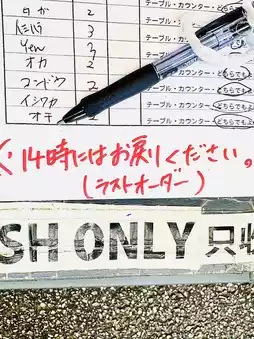 2
テーブル・カウンター・どちらでもよ
2
テーブル・カウンター・どちらでもよ
Yen 3
テーブル・カウンター
オカ 2
テーブル
コンドウ 2
テーブル・カウンター・どちらでもよ
イシワカ 2
テーブル・カウンター・どちらでもよ
オキ
テーブル・カウンター・どちらでもよ
14時にはお戻りください。
(ラストオーダー)
SH ONLY 只收